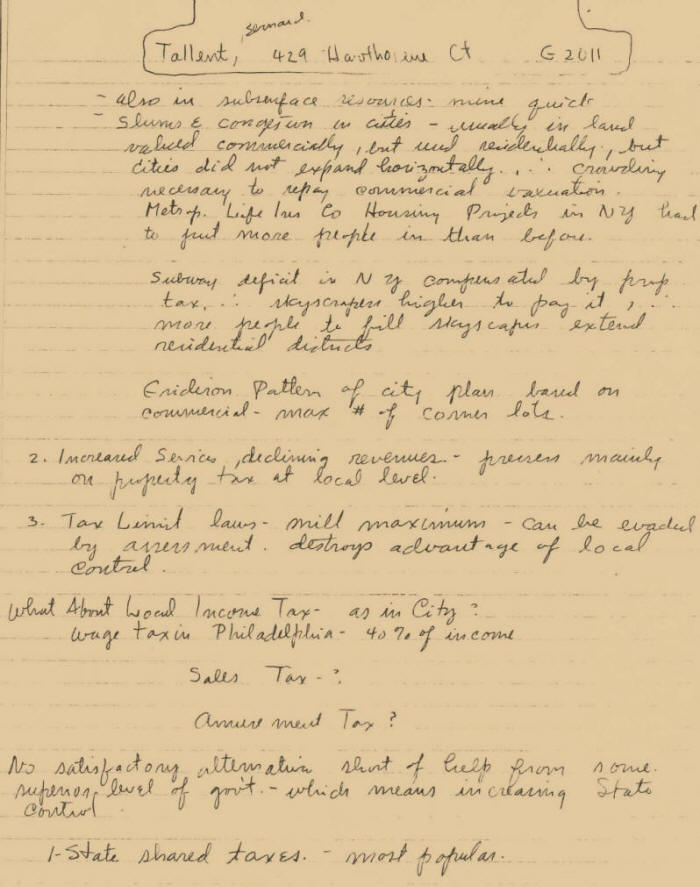 Bernard.
Tallent, 429 Hawthorne Ct G 2011
- also in subsurface resources - mine quick
- Slums & congestion in cities - usually in land
valued commercially, but used residentially, but
cities did not expand horizontally. ∴ crowding
necessary to repay commercial valuation.
Metrop. Life Ins Co Housing Projects in NY had
to put more people in than before.
Subway deficit in NY compensated by prop
tax, ∴ skyscrapers higher to pay it, ∴
more people to fill skyscrapers extend
residential districts
Gridiron Pattern of city plan based on
commercial - max # of corner lots.
2. Increased Services, declining revenues - presses mainly
on property tax at local level.
3. Tax Limit laws - mill maximum - can be evaded
by assessment. destroys advantage of local
control.
What About Local Income Tax - as in City?
wage tax in Philadelphia - 40% of income
Sales Tax - ?
Amusement Tax?
No satisfactory alternative short of help from some
superior level of gov't. - which means increasing State
control
1 - State shared taxes. - most popular.